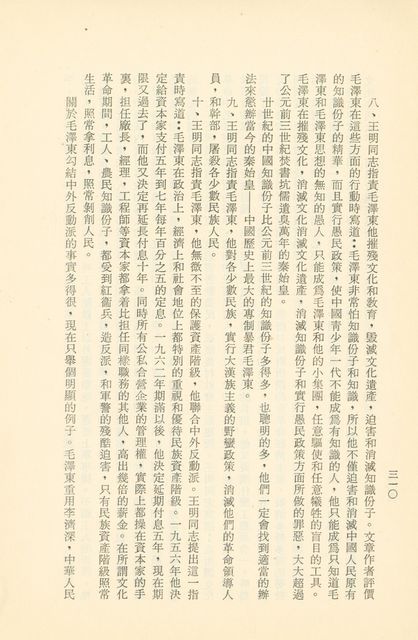 八、王明同志指責毛澤東他摧殘文化和教育，毀滅文化遺產，迫害和消滅知識份子。文章作者評價
毛澤東在這些方面的行動時寫道：毛澤東非常怕知識份子和知識，所以他不僅迫害和消滅中國人民原有
的知識份子的精華，而且實行愚民政策，使中國青少年一代不能成爲有知識的人，他只能成爲只知道毛
澤東和毛澤東思想的無知的愚人，只能成爲毛澤東和他的小集團，任意驅使和任意犧牲的盲目的工具。
毛澤東在摧殘文化，消滅文化消滅文化遺產，消滅知識份子和實行愚民政策方面所做的罪惡，大大超過
了公元前三世紀焚書坑儒遺臭萬年的秦始皇。
廿世紀的中國知識份子比公元前三世紀的知識份子多得多，也聰明的多，他們一定會找到適當的辦
法來懲辦當今的秦始皇——中國歷史上最大的專制暴君毛澤東。
九、王明同志指責毛澤東，他對各少數民族，實行大漢族主義的野蠻政策，消滅他們的革命領導人
員，和幹部，屠殺各少數民族人民。
十、王明同志指責毛澤東，他無微不至的保護資產階級，他聯合中外反動派。王明同志提出這一指
責時寫道：毛澤東在政治上，經濟上和社會地位上都特別的重視和優待民族資產階級。一九五六年他決
定給資本家支付五年到七年每年百分之五的定息。一九六二年期滿以後，他決定延期付息五年，現在期
限又過去了，而他又決定再延長付息十年。同時所有公私合營企業的管理權，實際上都操在資本家的手
裏，担任廠長，經理，工程師等資本家都拿着比担任同樣職務的其他人，高出幾倍的薪金。在所謂文化
革命期間，工人、農民知識份子，都受到紅衞兵，造反派，和軍警的殘酷迫害，只有民族資產階級照常
生活，照常拿利息，照常剝削人民。
關於毛澤東勾結中外反動派的事實多得很，現在只舉個明顯的例子。毛澤東重用李濟深，中華人民
三一〇